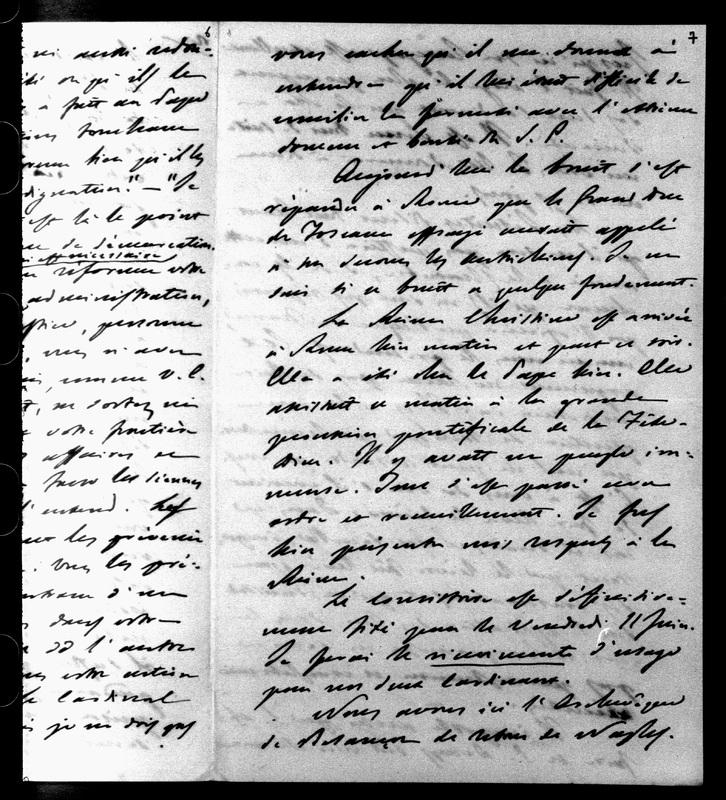 6
ni aussi redou-
on qu'ils le
a fait au Pape
bien qu'il by
"—"Je
est là le point
de démarcation
si est nécessaire
réforme votre
administration,
personne
comme V. E.
ne sortez ni
votre frontière
affaires ne
faire les siennes
l'entend.
les prévenir
. Vous les pré-
d'une
dans votre
l'autre
votre action
le Cardinal
je ne dois pas
7
vous cacher qu'il me donna à
entendre qu'il lui était difficile de
concilier la fermeté avec l'extrême
douceur et bonté du S. P.
Aujourd'hui le bruit s'est
répandu à Rome que le Grand Duc
de Toscane effrayé aurait appelé
à son secours les Autrichiens. Je ne
sais si ce bruit a quelque fondement.
La Reine Christine est arrivée
à Rome hier matin et part ce soir.
Elle a été chez le Pape hier. Elle
assistait ce matin à la grande
procession pontificale de la Fête-
Dieu. Il y avait un peuple im-
mense. Tout s'est passé avec
ordre et recueillement. Je fus
hier présenter mes respects à la
Reine.
Le consistoire est définitive-
ment fixé pour le vendredi 11 Juin.
Je ferai le ricevimento d'usage
pour nos deux Cardinaux.
Nous avons ici l'Archevêque
de Besançon de retour de Naples.